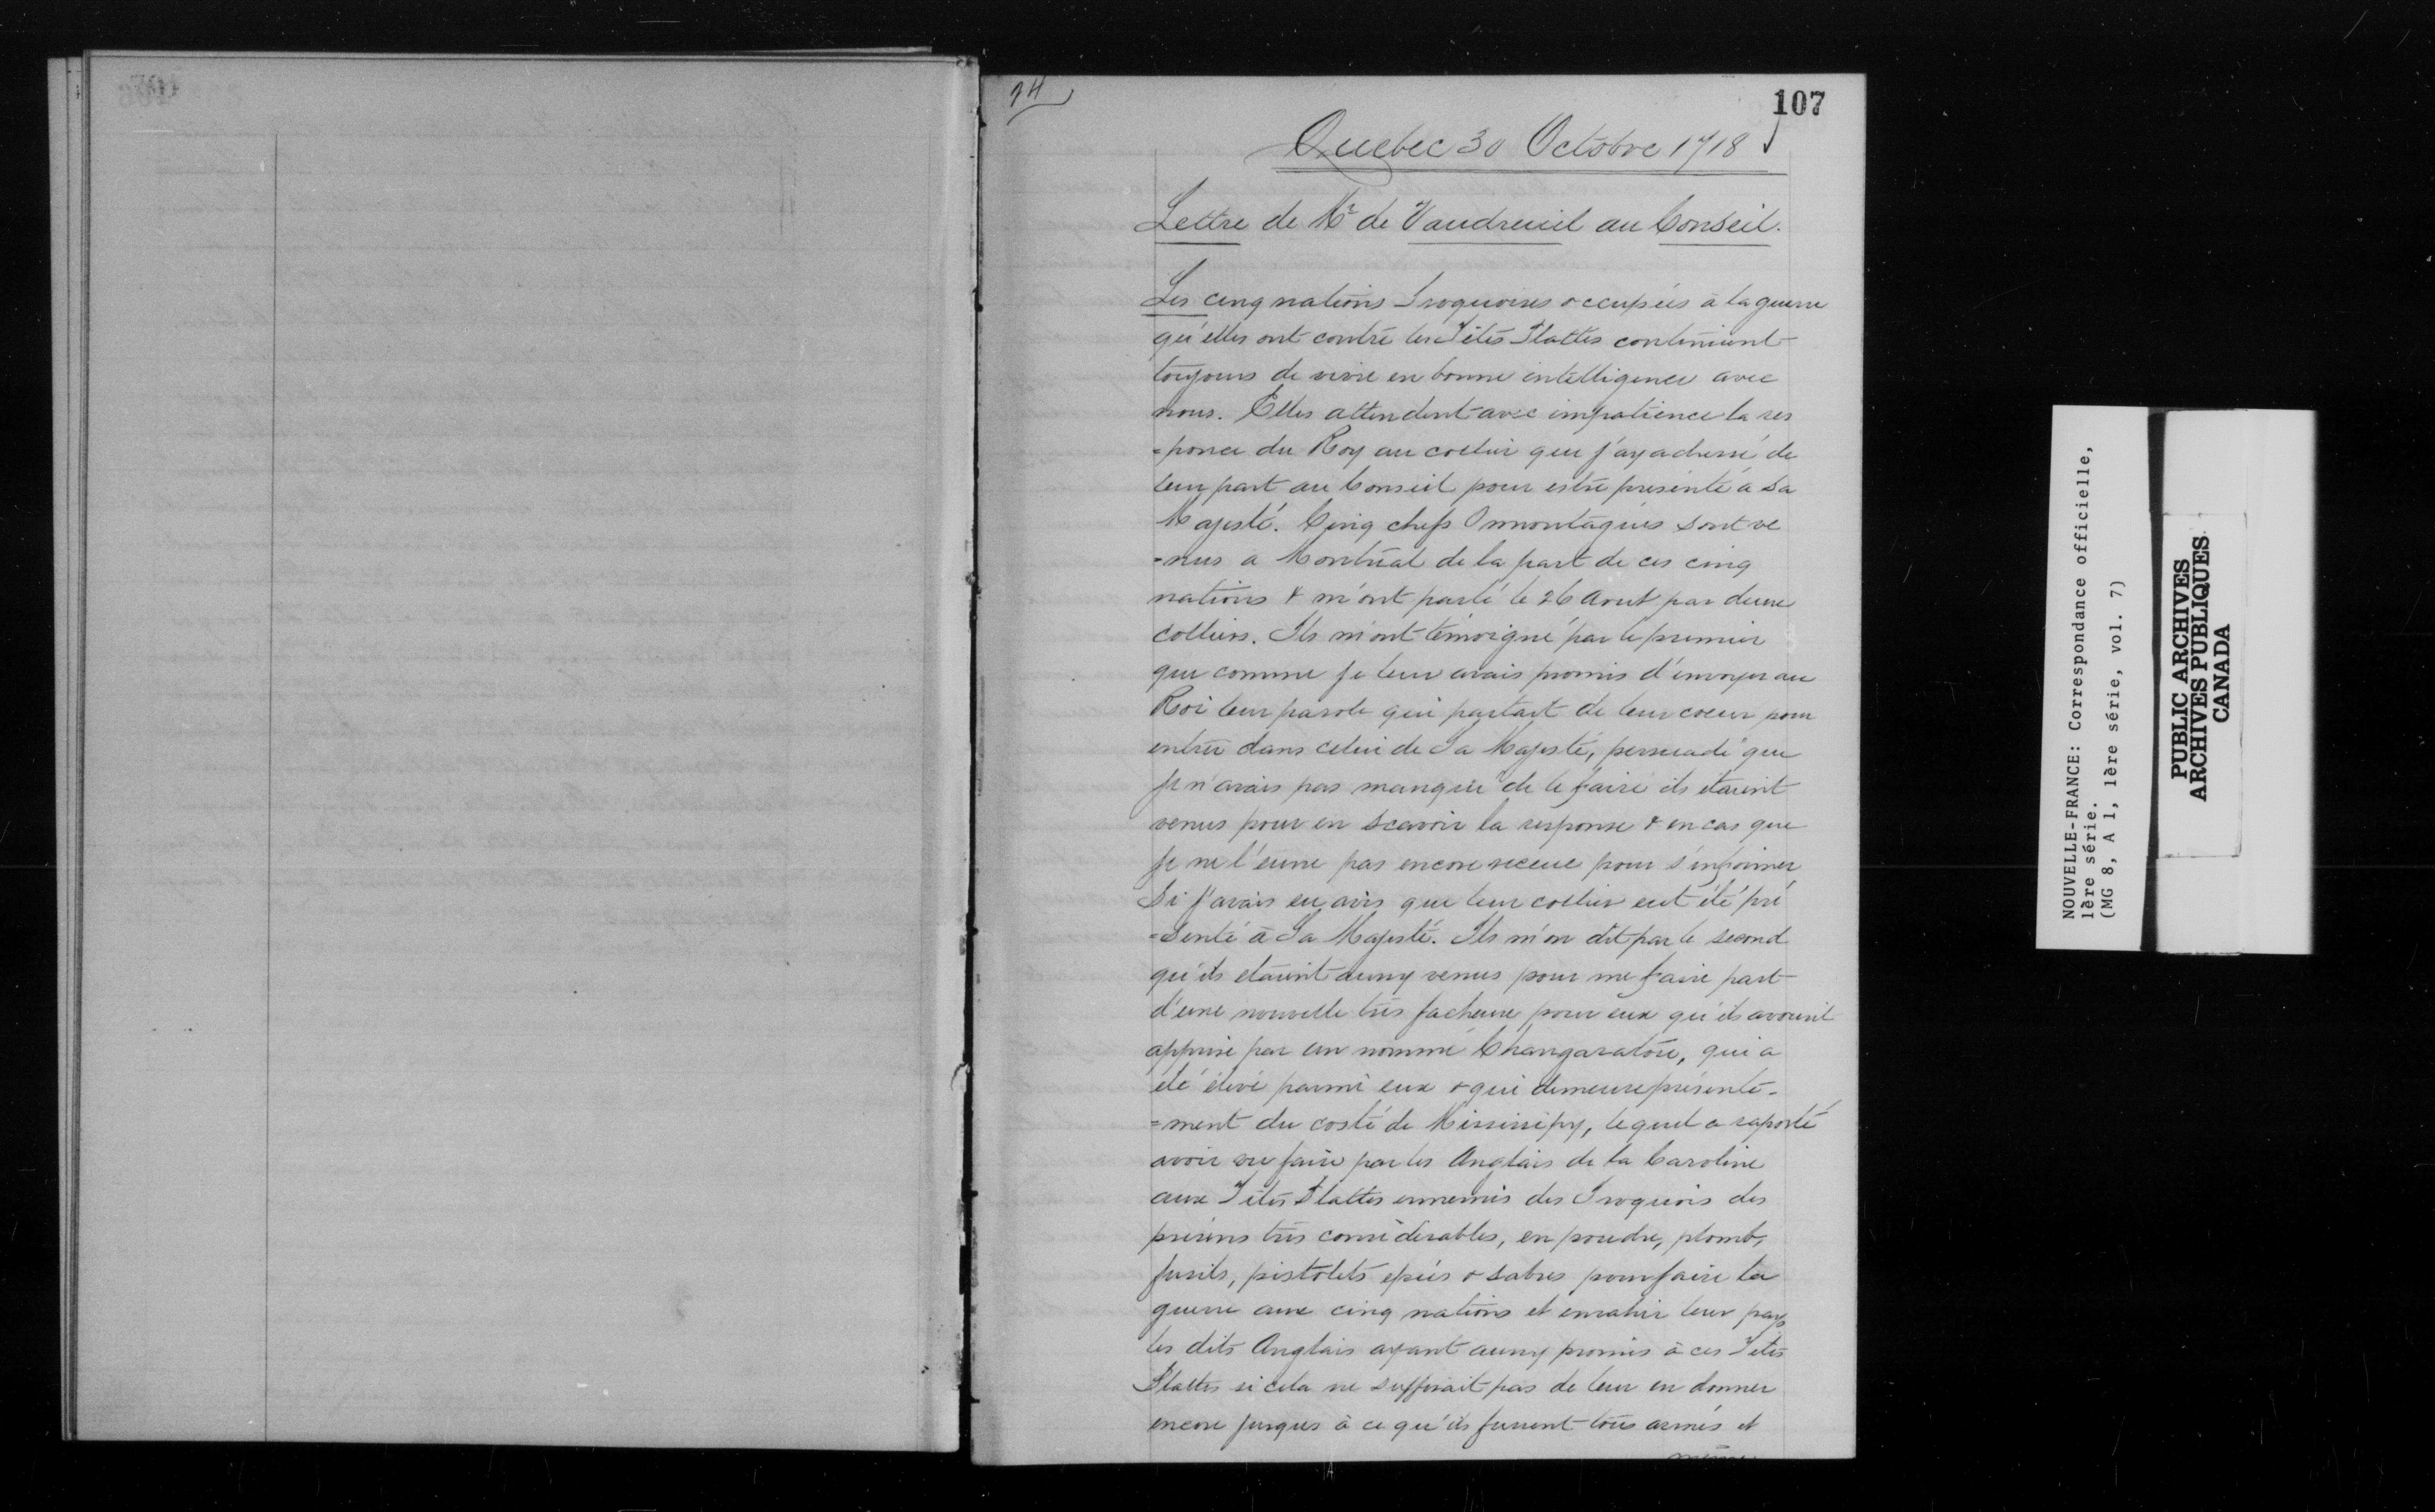 94
107
Quebec 30 Octobre 1718
Lettre de Mr de Vaudreuil au Conseil.
Les cinq nations Iroquoises occupées à la guerre
qu'elles ont contre les Têtes Plattes continuent
toujours de vivre en bonne intelligence avec
nous. Elles attendent avec impatience la res
=ponce du Roy au collier que j'ay adressé de
leur part au Conseil pour estre presenté à Sa
Majesté. Cinq chefs Onnontagués sont ve
=nus a Montréal de la part de ces cinq
nations & m'ont parlé le 26 Aout par deux
colliers. Ils m'ont témoigné par le premier
que comme je leur avais promis d'envoyer au
Roi leur parole qui partait de leur coeur pour
entrer dans celui de Sa Majesté, persuadé que
je n'avais pas manqué de le faire ils étaient
venus pour en scavoir la response & en cas que
je ne l'eusse pas encore receue pour s'informer
Si j'avais eu avis que leur collier eut été pré
=senté à Sa Majesté. Ils m'on dit par le second
qu'ils étaient aussy venus pour me faire part
d'une nouvelle très facheuse pour eux qu'ils avoient
apprise par un nommé Changaratore, qui a
été élevé parmi eux & qui demeure présente-
=ment du costé de Missisipy, lequel a raporté
avoir vu faire par les Anglais de la Caroline
aux Têtes Plattes ennemis des Iroquois des
présens très considerables, en poudre, plomb,
fusils, pistolets epées & sabres pour faire la
guerre aux cinq nations et envahir leur pays
les dits Anglais ayant aussy promis à ces Têtes
Plattes si cela ne suffisait pas de leur en donner
encore jusques à ce qu'ils fussent tous armés et
même
NOUVELLE-FRANCE: Correspondance officielle,
1ère série.
(MG 8, A 1, 1ère série, vol. 7)
PUBLIC ARCHIVES
ARCHIVES PUBLIQUES
CANADA